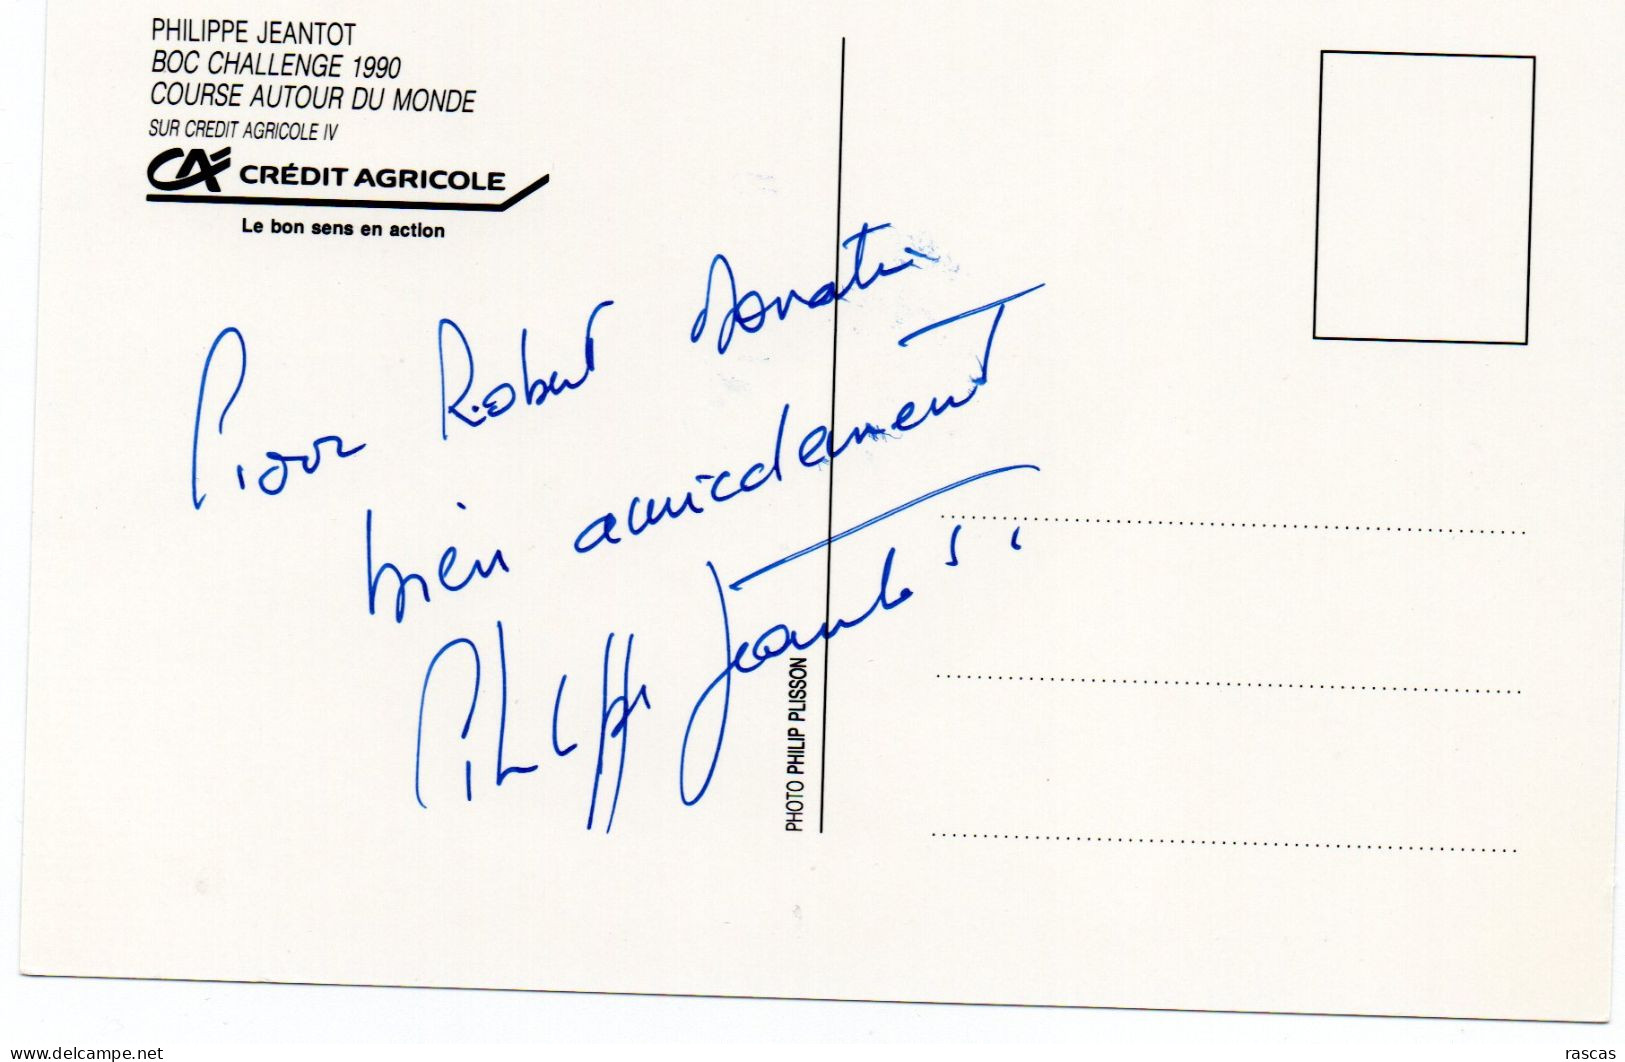 PHILIPPE JEANTOT
BOC CHALLENGE 1990
COURSE AUTOUR DU MONDE
SUR CREDIT AGRICOLE IV
CA CRÉDIT AGRICOLE
Le bon sens en action
Pour Robert Donati
bien amicalement
Philippe Jeantot
PHOTO PHILIP PLISSON
www.delcampe.net
rascas